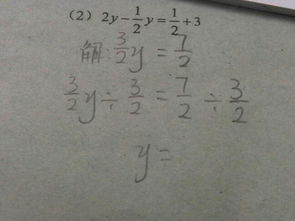 (2) 2y-1/2y=1/2+3
解:3/2y=7/2
3/2y÷3/2=7/2÷3/2
y=